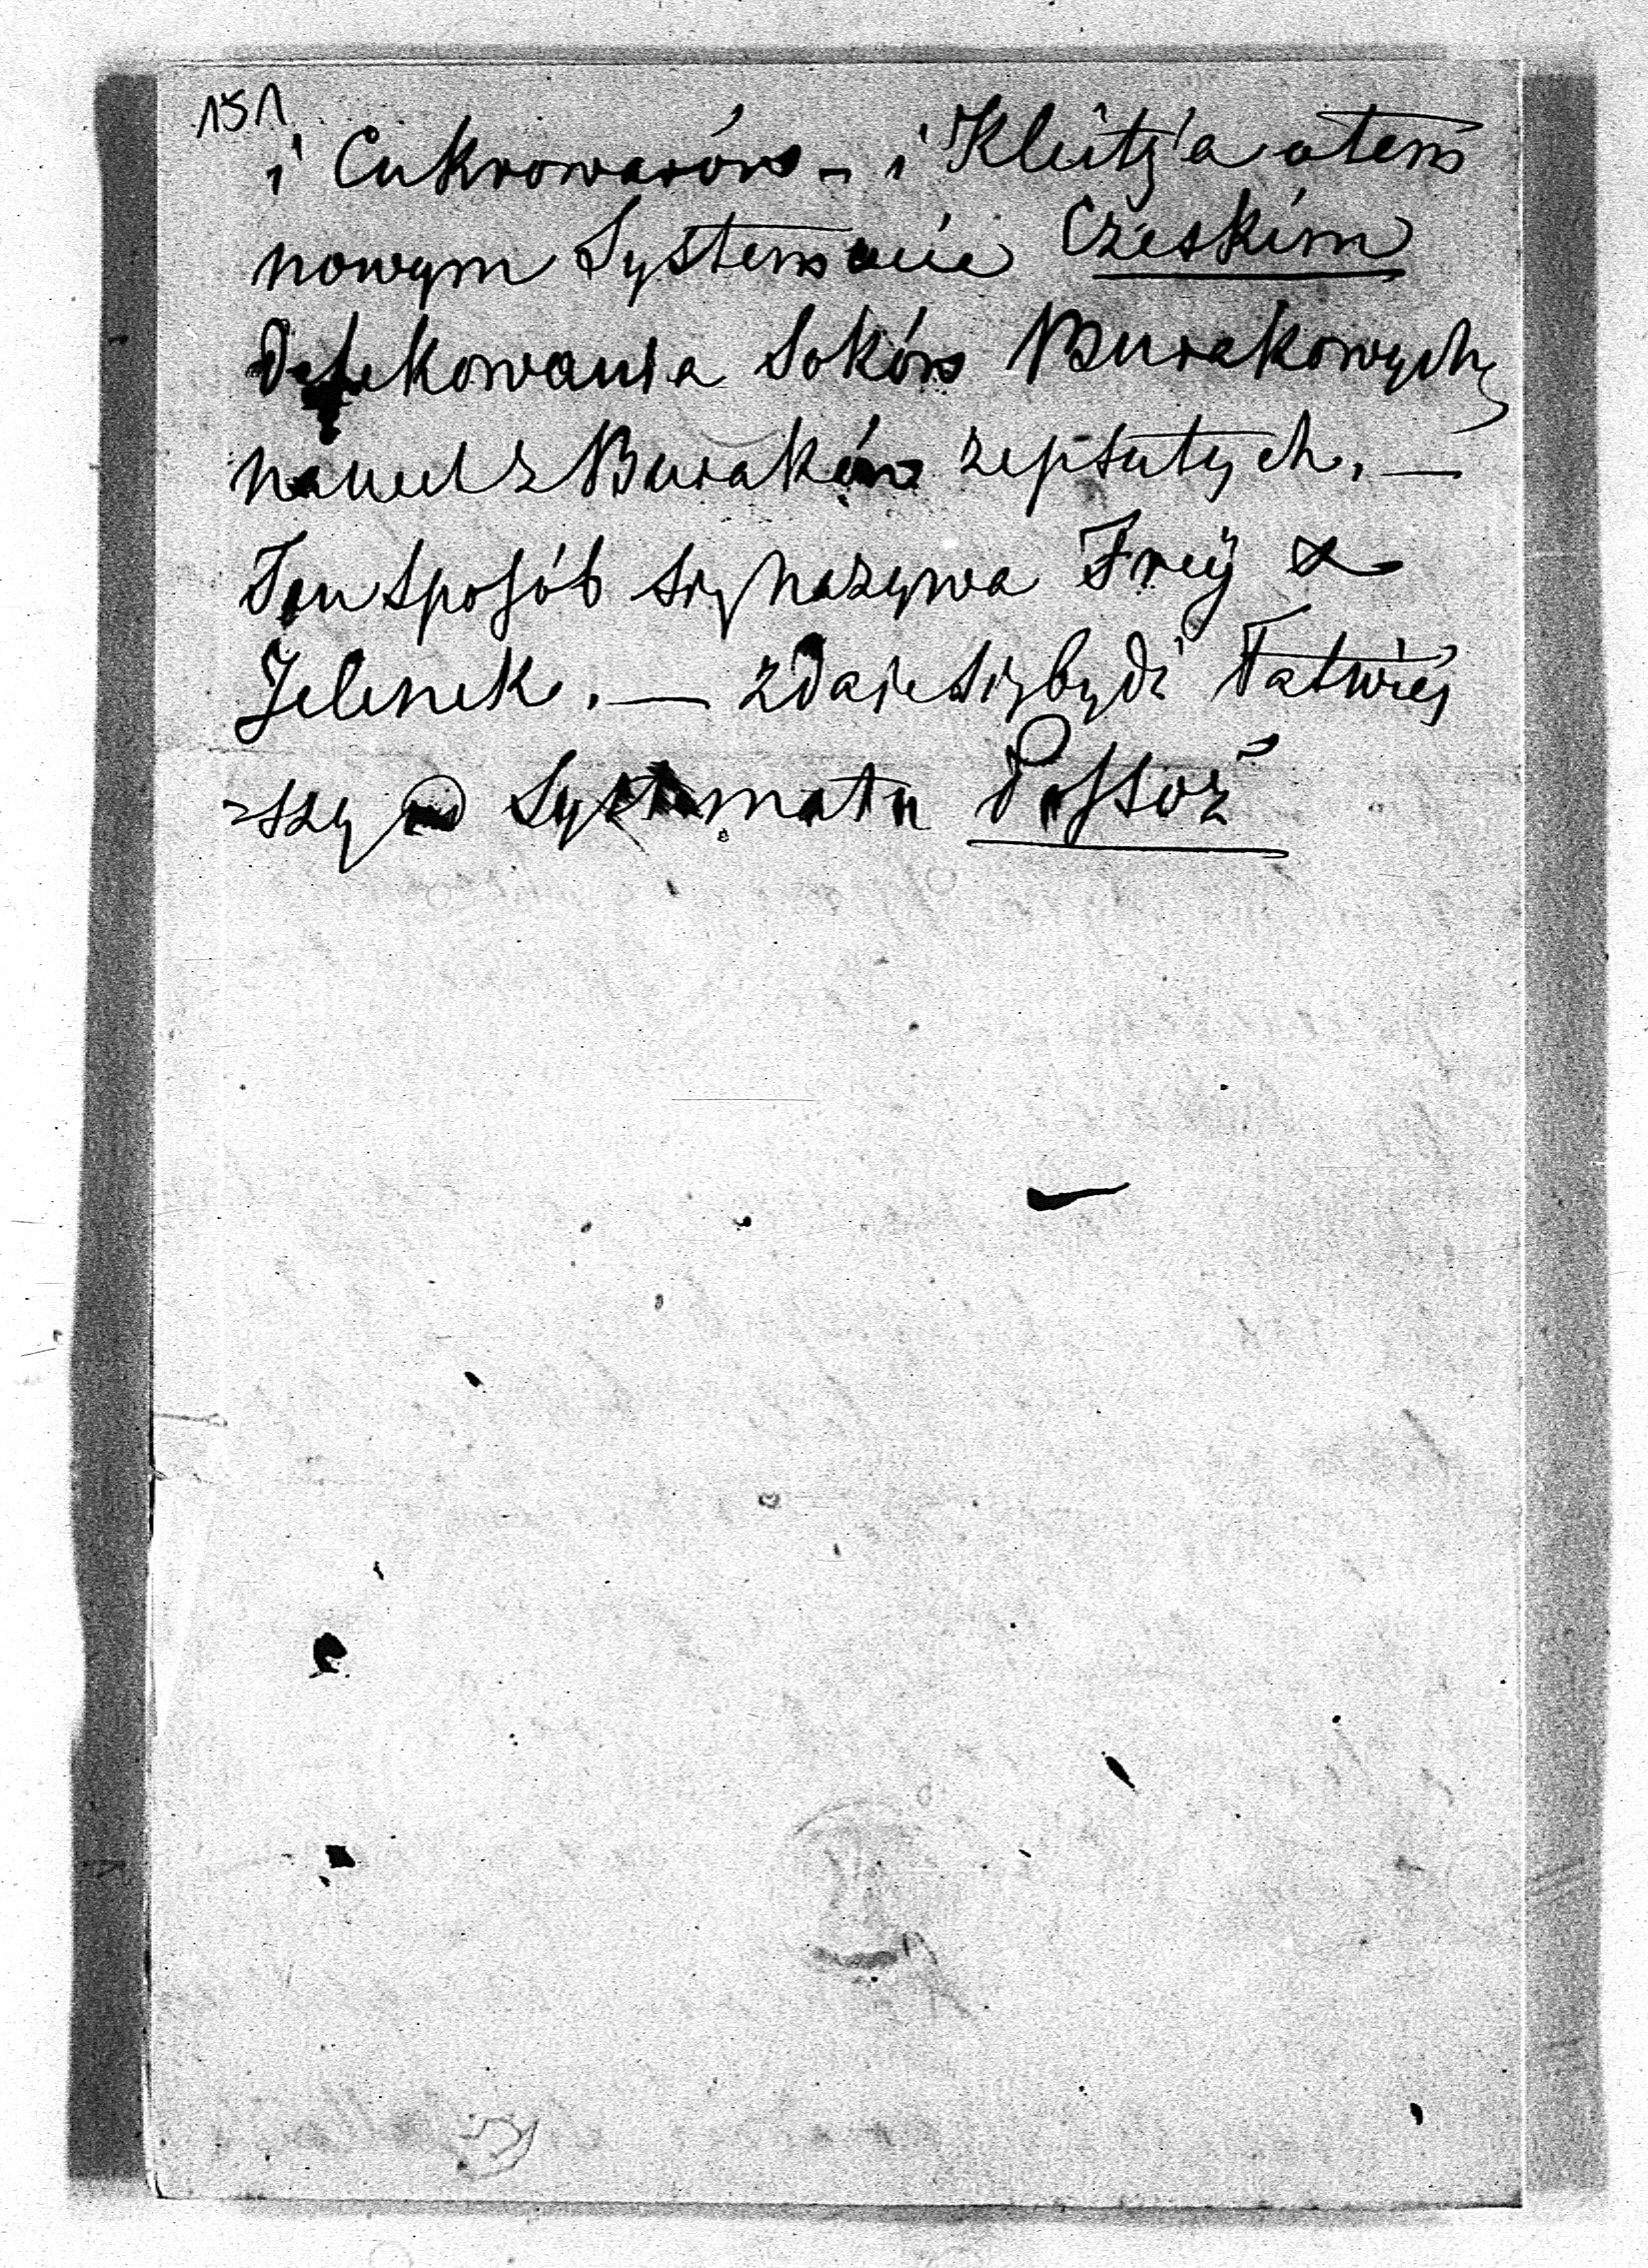 151
i Cukrowarów – i Kleitz'a o tem
nowym Systemacie Czeskim
Defekowania Soków Burakowych,
nawet z Buraków zepsutych. —
Ten Sposób się nazywa Frey &
Jelinek. — zdaie się bydź łatwiéj
=szy od Systematu Possoz